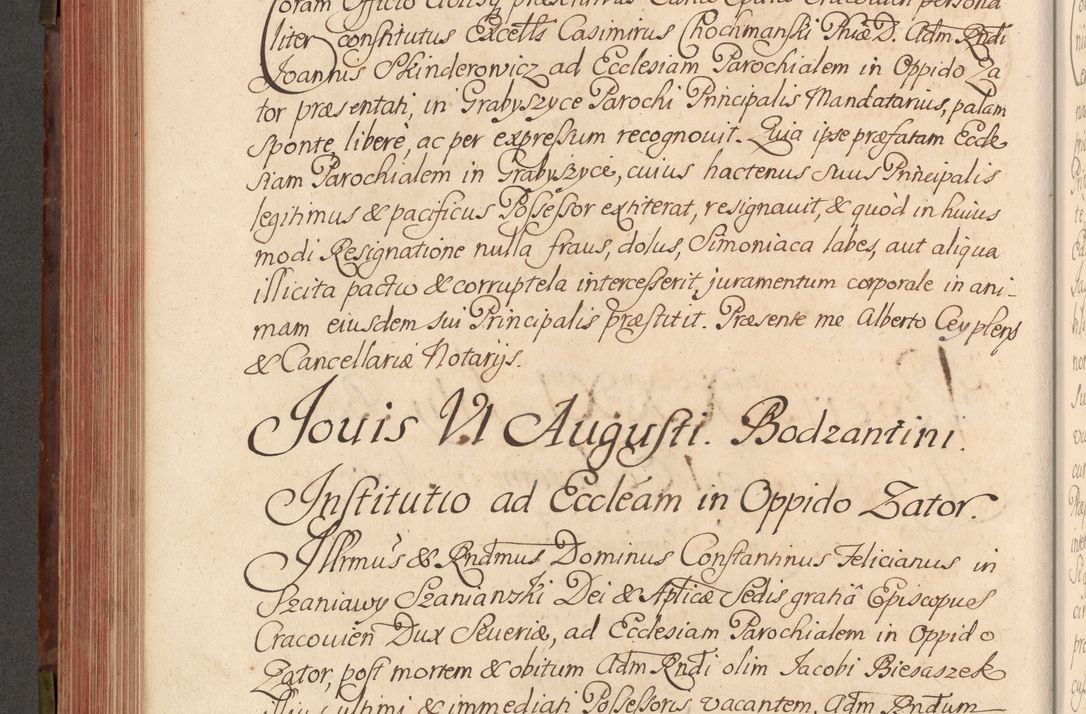 Coram Officio
liter constitutus Excells Casimirus Chochmanski Phiæ D. Adm Rndi
Joannis Skinderowicz ad Ecclesiam Parochialem in Oppido Za
tor præsentati, in Grabyszyce Parochi Principalis Mandatarius, palam
sponte, liberè, ac per expreſsum recognouit. Quia ipse præfatam Eccle
siam Parochialem in Grabyszyce, cuius hactenus suus Principalis
legitimus & pacificus Poſseſsor extiterat, resignauit, & quòd in huius
modi Resignatione nulla fraus, dolus, Simoniaca labes, aut aliqua
illicita pactio & corruptela interceſserit, juramentum corporale in ani-
mam eiusdem sui Principalis præstitit. Præsente me Alberto
& Cancellariæ Notarijs.
Jouis VI Augusti. Bodzantini.
Institutio ad Eccleam in Oppido Zator.
Illrmus & Rndmus Dominus Constantinus Felicianus in
Szaniawy Szaniawski Dei & Aplicæ Sedis gratiâ Episcopus
Cracouien Dux Seueriæ, ad Ecclesiam Parochialem in Oppido
Zator, post mortem & obitum Adm Rndi olim Jacobi Biesaszek
illius ultimi & immediati Poſseſsoris vacantem, Adm Rndum